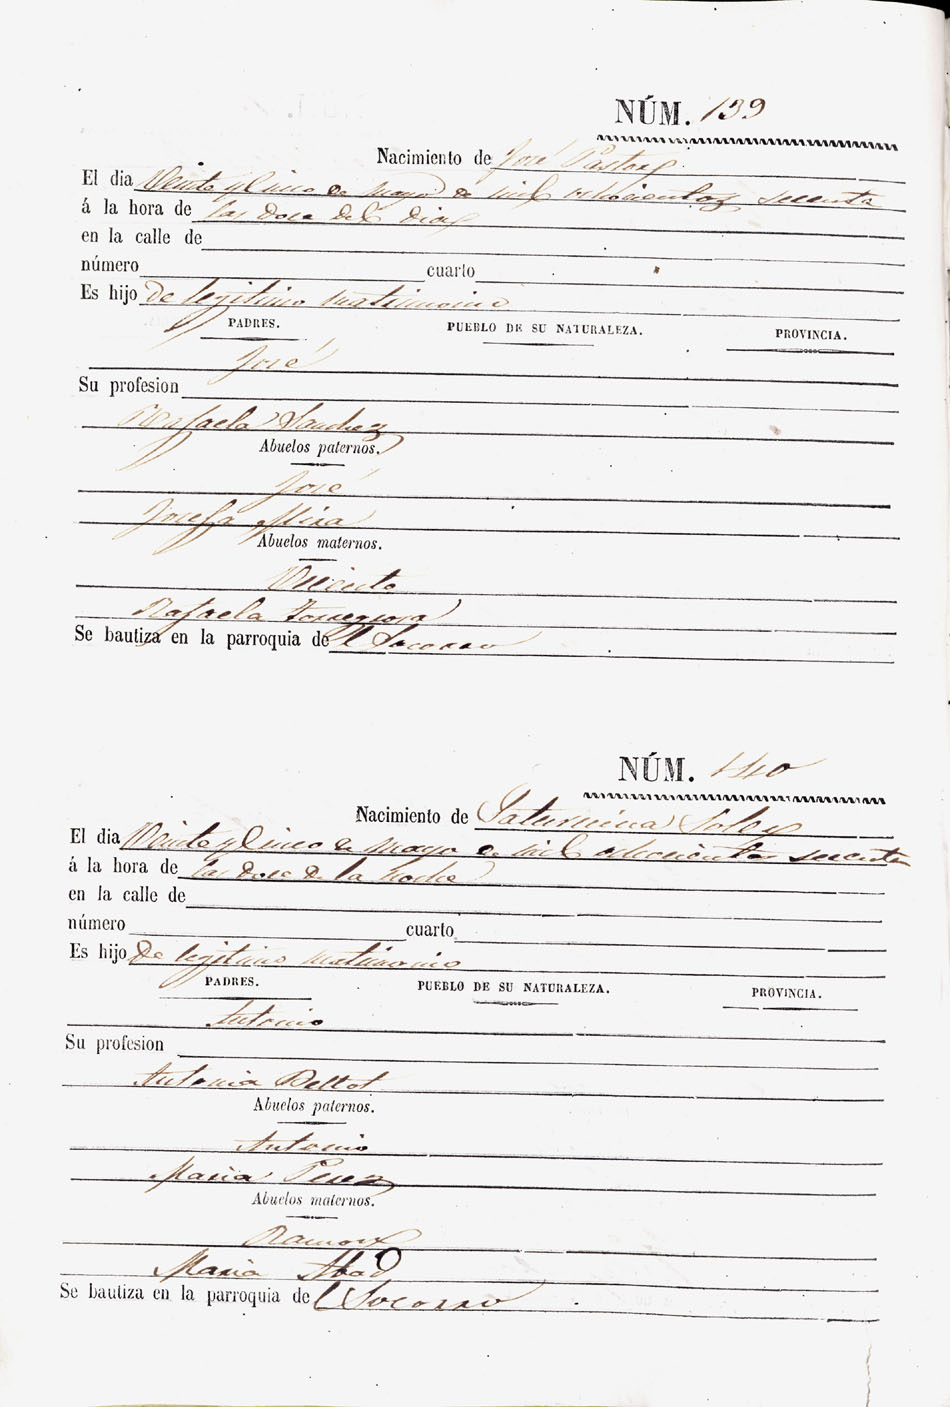 NÚM. 139
Nacimiento de José Pastor
El dia Veinte y Cinco de Mayo de mil ochocientos sesenta
á la hora de las doce del dia
en la calle de
número cuarto
Es hijo de legitimo matrimonio
PADRES. PUEBLO DE SU NATURALEZA. PROVINCIA.
José
Su profesion
Rafaela Sanchez
Abuelos paternos.
José
Josefa Mira
Abuelos maternos.
Vicente
Rafaela Torregrosa
Se bautiza en la parroquia de el Socorro
NÚM. 140
Nacimiento de Saturnina Soler
El dia Veinte y Cinco de Mayo de mil ochocientos sesenta
á la hora de las doce de la noche
en la calle de
número cuarto
Es hijo de legitimo matrimonio
PADRES. PUEBLO DE SU NATURALEZA. PROVINCIA.
Antonio
Su profesion
Antonia Beltot
Abuelos paternos.
Antonio
Maria Perez
Abuelos maternos.
Ramon
Maria Abad
Se bautiza en la parroquia de el Socorro